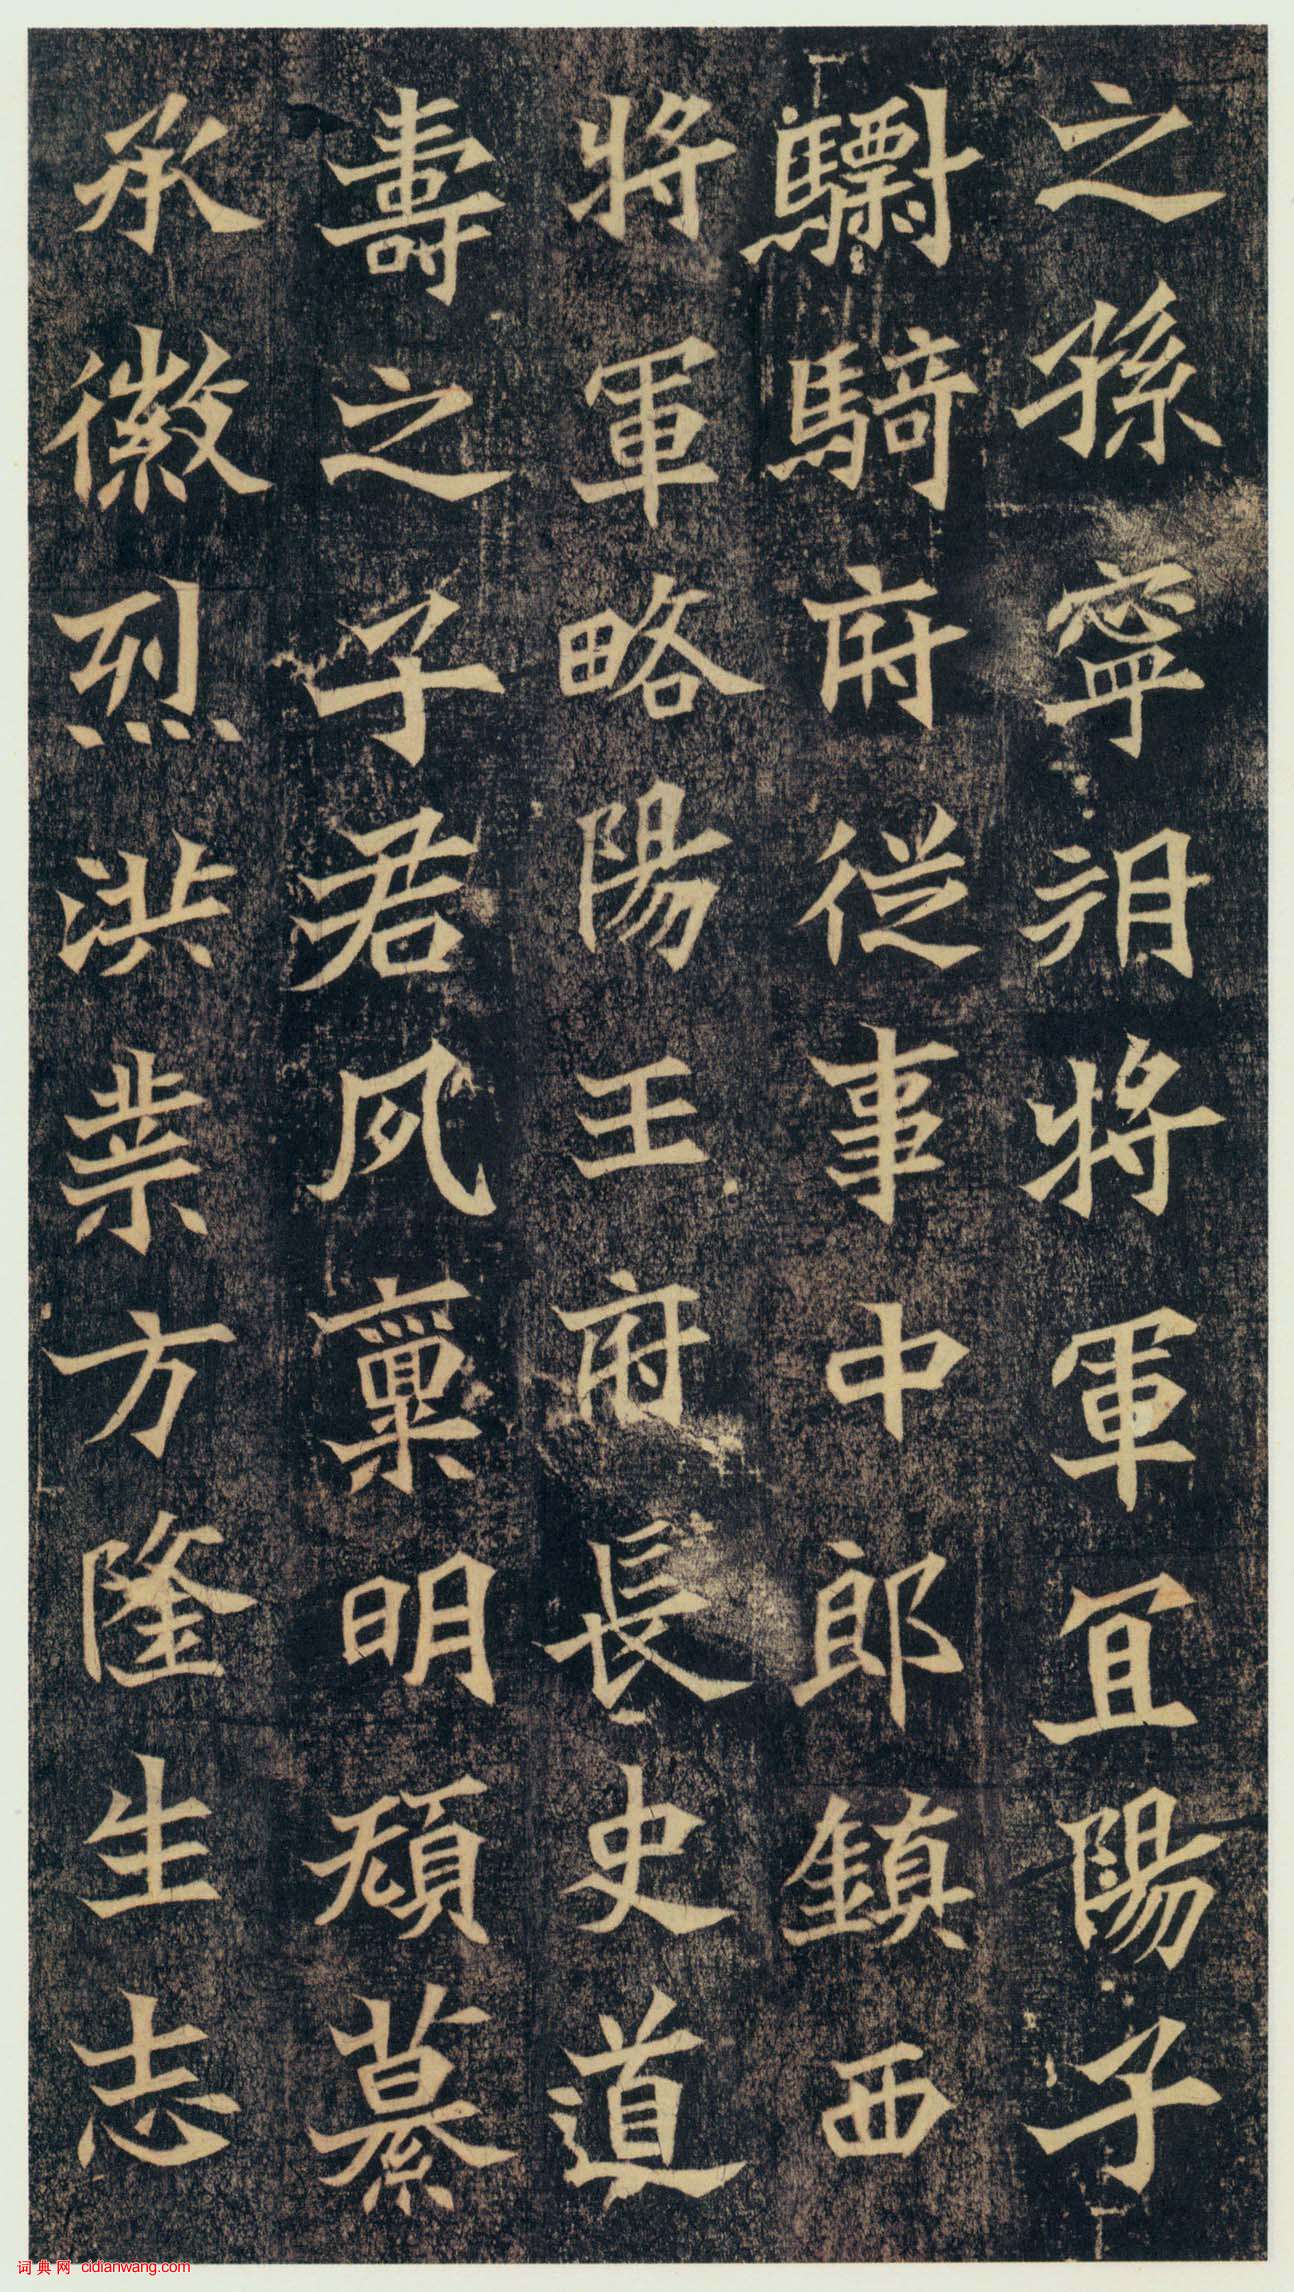 之孫寧朔將軍宜陽子
驃騎府從事中郎鎮西
將軍略陽王府長史道
壽之子君夙稟明頑慕
承徽烈洪業方隆生志
词典网 cidianwang.com